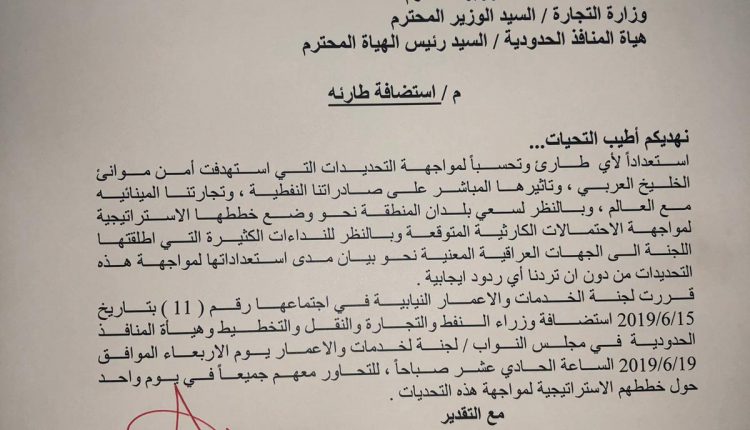 وزارة التجارة / السيد الوزير المحترم
هيأة المنافذ الحدودية / السيد رئيس الهيأة المحترم
م / استضافة طارئه
نهديكم أطيب التحيات...
استعداداً لأي طارئ وتحسباً لمواجهة التحديدات التي استهدفت أمن موانئ
الخليج العربي ، وتاثيرها المباشر على صادراتنا النفطية ، وتجارتنا المينائيه
مع العالم ، وبالنظر لسعي بلدان المنطقة نحو وضع خططها الاستراتيجية
لمواجهة الاحتمالات الكارثية المتوقعة وبالنظر للنداءات الكثيرة التي اطلقتها
اللجنة الى الجهات العراقية المعنية نحو بيان مدى استعداداتها لمواجهة هذه
التحديات من دون ان تردنا أي ردود ايجابية .
قررت لجنة الخدمات والاعمار النيابية في اجتماعها رقم ( 11 ) بتاريخ
2019/6/15 استضافة وزراء النفط والتجارة والنقل والتخطيط وهيأة المنافذ
الحدودية في مجلس النواب / لجنة لخدمات والاعمار يوم الاربعاء الموافق
2019/6/19 الساعة الحادي عشر صباحاً ، للتحاور معهم جميعاً في يوم واحد
حول خططهم الاستراتيجية لمواجهة هذه التحديات .
مع التقدير